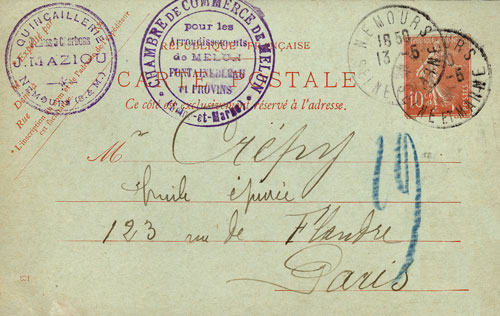 QUINCAILLERIE
J. MAZIOU
NEMOURS (S.&M.)
CHAMBRE DE COMMERCE DE MELUN
pour les
Arrondissements
de MELUN
FONTAINEBLEAU
et PROVINS
(Seine-et-Marne)
RÉPUBLIQUE FRANÇAISE
CARTE POSTALE
Ce côté est exclusivement réservé à l'adresse.
NEMOURS
18 50
13 - 5
SEINE ET MARNE
10
Mr Crépy
huile épurée
123 rue de Flandre
Paris
19